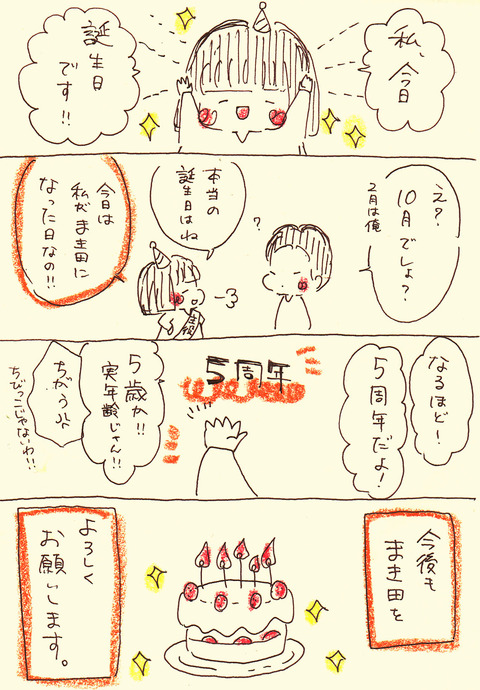 私、今日
誕生日
です!!
え?
10月でしょ?
2月は俺
?
本当の
誕生日はね
今日は
私がまき田に
なった日なの!!
なるほど!
5周年だよ!
5周年
5歳か!!
実年齢じゃん!!
ちがうよ
ちびっこじゃないわ!!
今後も
まき田を
よろしく
お願いします。